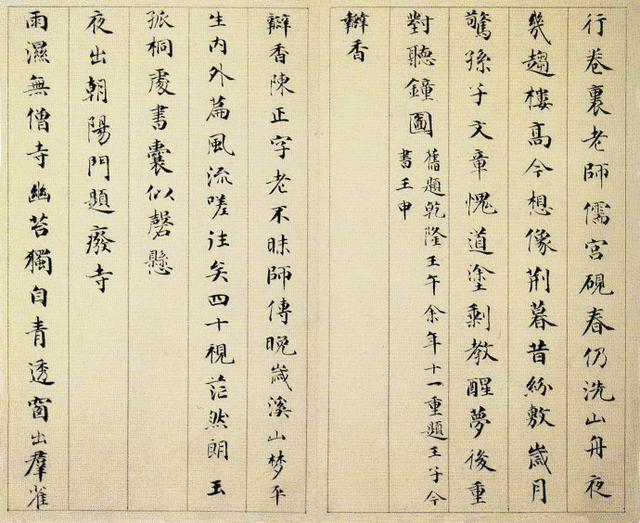 行卷裏老師儒宮硯春仍洗山舟夜
幾趨樓高今想像荆暮昔紛敷歲月
驚孫子文章愧道塗剩教醒夢後重
對聽鐘圖
舊題乾隆壬午余年十一重題壬子今
書壬申
瓣香
瓣香陳正字老不昧師傳晚歲溪山梦平
生内外篇風流嗟往矣四十視茫然朗玉
孤桐處書囊似磬懸
夜出朝陽門題廢寺
雨濕無僧寺幽苔獨自青透窗出羣雀